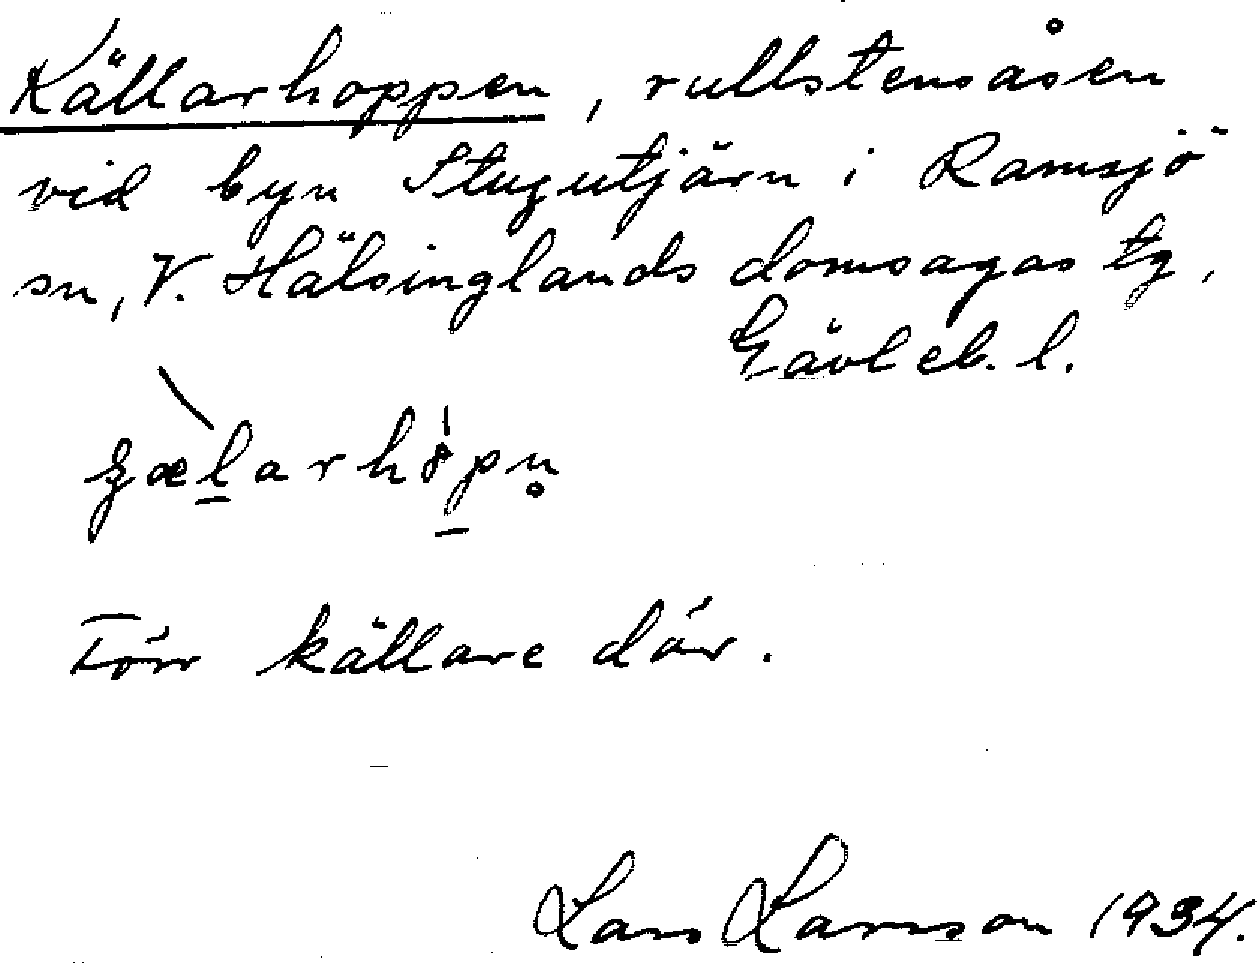 Källarhoppen, rullstensåsen
vid byn Stugutjärn i Ramsjö
sn, V. Hälsinglands domsagas tg,
Gävleb. l.
Förr källare där.
Lars Larsson 1934.